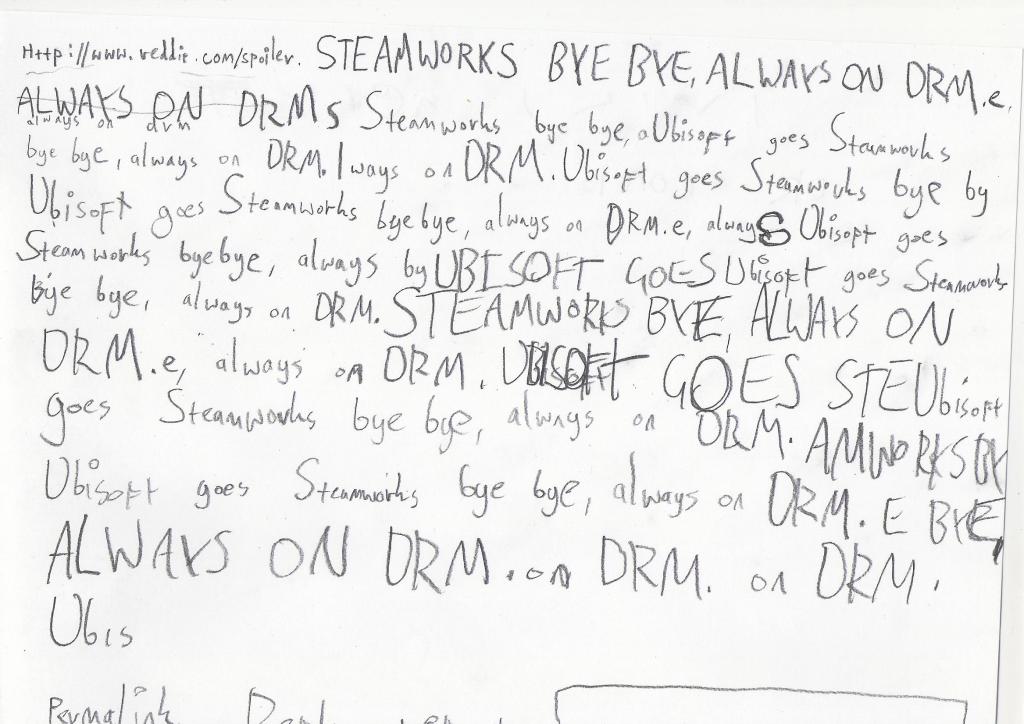 Http://www.reddit.com/spoiler. STEAMWORKS BYE BYE, ALWAYS ON DRM.e,
ALWAYS ON DRMs Steamworks bye bye, aUbisoft goes Steamworks
always on drm
bye bye, always on DRM. lways on DRM. Ubisoft goes Steamworks bye by
Ubisoft goes Steamworks bye bye, always on DRM.e, alwayS Ubisoft goes
Steamworks bye bye, always byUBISOFT GOES Ubisoft goes Steamworks
bye bye, always on DRM. STEAMWORKS BYE, ALWAYS ON
DRM.e, always on DRM. UBISOFT GOES STEUbisoft
goes Steamworks bye bye, always on DRM. AMWORKS BY
Ubisoft goes Steamworks bye bye, always on DRM. E BYE,
ALWAYS ON DRM. on DRM. on DRM.
Ubis
Permalink